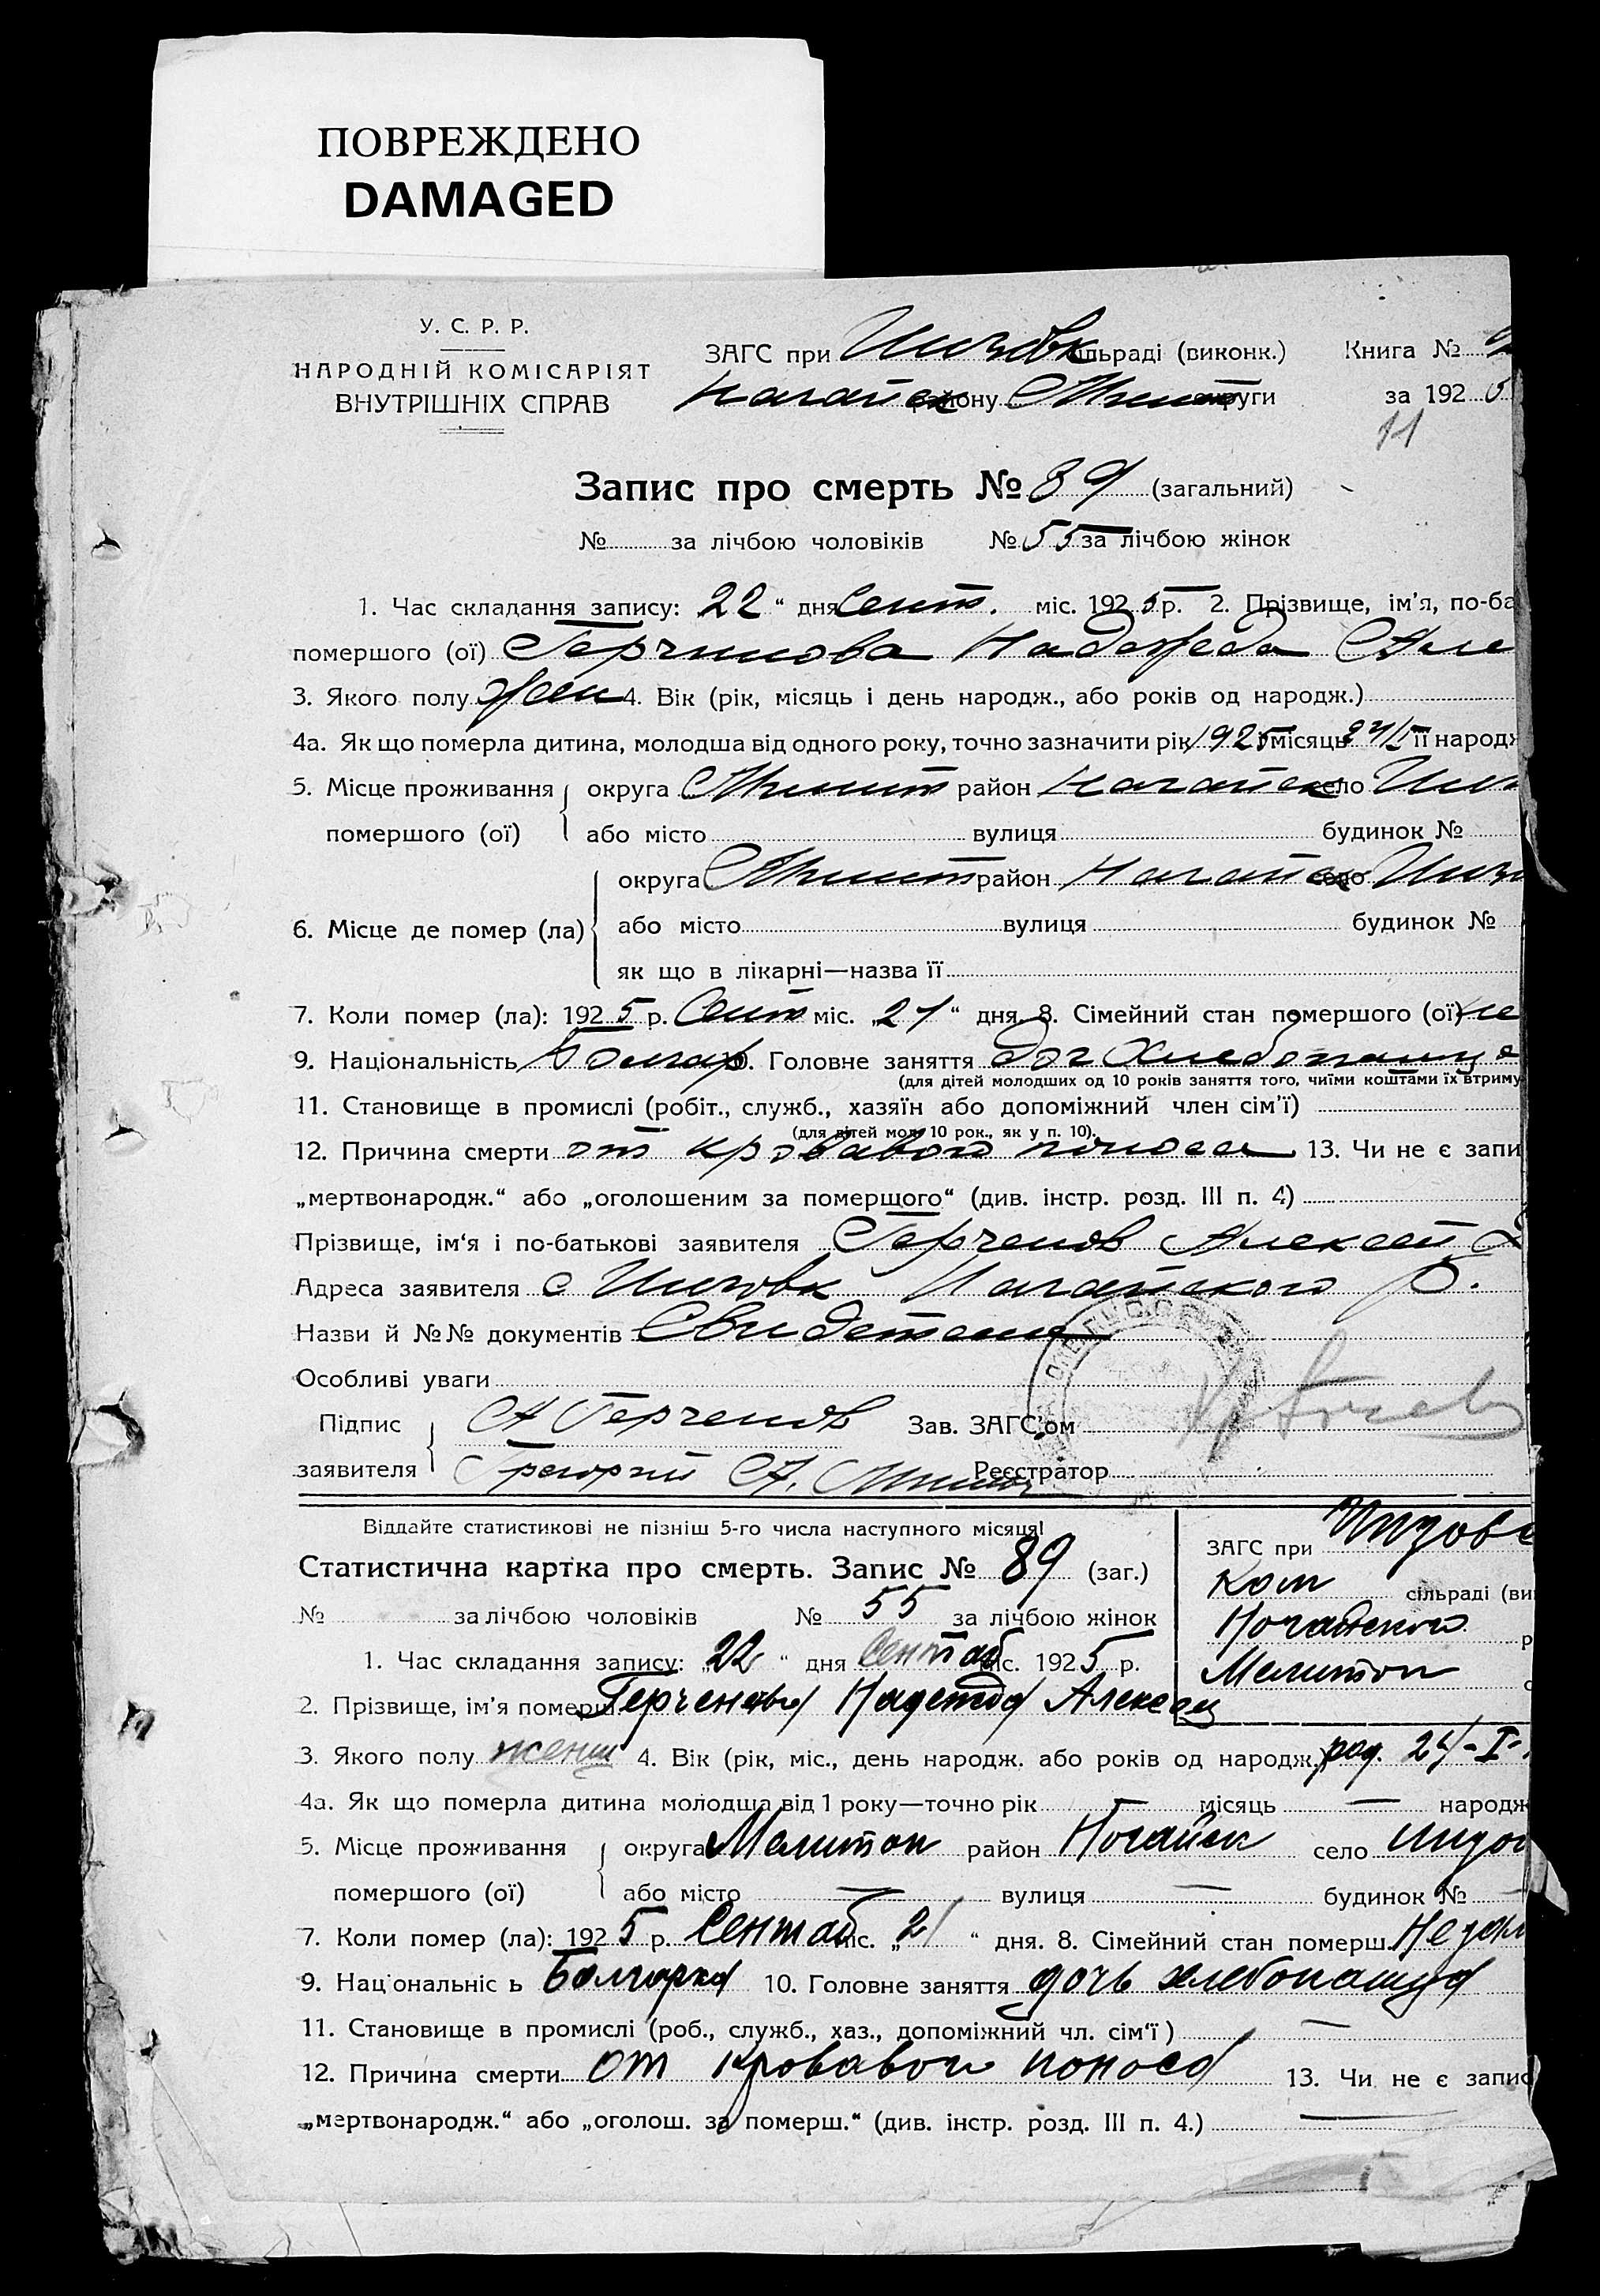 ПОВРЕЖДЕНО
DAMAGED
У. С. Р. Р.
НАРОДНІЙ КОМІСАРІЯТ
ВНУТРІШНІХ СПРАВ
ЗАГС при Низовк сільраді (виконк.) Книга №
Нагайск району Мелит округи за 1925
11
Запис про смерть № 89 (загальний)
№ за лічбою чоловіків № 55 за лічбою жінок
1. Час складання запису: 22 “ дня Сент. міс. 1925 р. 2. Прізвище, ім'я, по-ба
помершого (ої) Надежда Але
3. Якого полу жен 4. Вік (рік, місяць і день народж., або років од народж.)
4а. Як що померла дитина, молодша від одного року, точно зазначити рік 1925 місяць 24/I її народж
5. Місце проживання округа Мелит район Нагайск село Низ
помершого (ої) або місто вулиця будинок №
округа Мелит район Нагайск село Низ
6. Місце де помер (ла) або місто вулиця будинок №
як що в лікарні—назва її
7. Коли помер (ла): 1925 р. Сент міс. „21“ дня. 8. Сімейний стан помершого (ої) не
9. Національність Болгар 10. Головне заняття доч Хлебопашца
(для дітей молодших од 10 років заняття того, чиїми коштами їх втриму
11. Становище в промислі (робіт., служб., хазяїн або допоміжний член сім'ї)
(для дітей мол. 10 рок., як у п. 10).
12. Причина смерти от кровавого поноса 13. Чи не є запи
„мертвонародж.“ або „оголошеним за померщого“ (див. інстр. розд. III п. 4)
Прізвище, ім'я і по-батькові заявителя Герченов Алексей
Адреса заявителя с Низовк Нагайского р.
Назви й №№ документів
Особливі уваги
Підпис А Герченов Зав. ЗАГС'ом
заявителя Григорий А. Реєстратор
Віддайте статистикові не пізніш 5-го числа наступного місяця!
Статистична картка про смерть. Запис № 89 (заг.)
№ за лічбою чоловіків № 55 за лічбою жінок
ЗАГС при Низовс
Ком сільраді (ви
Ногайского р
Мелитоп
1. Час складання запису: „22 “ дня Сентяб міс. 1925 р.
2. Прізвище, ім'я померш. Надежда Алексеа
3. Якого полу женщ 4. Вік (рік, міс., день народж. або років од народж.) род. 24/-I-
4а. Як що померла дитина молодша від 1 року—точно рік — місяць — народж
5. Місце проживання округа Мелитоп район Ногайск село Низов
помершого (ої) або місто — вулиця — будинок № —
7. Коли помер (ла): 1925 р. Сентяб міс. „21 “ дня. 8. Сімейний стан померш. Незам
9. Національніс ь Болгарка 10. Головне заняття дочь хлебопашца
11. Становище в промислі (роб., служб., хаз., допоміжний чл. сім'ї) —
12. Причина смерти от кровавого поноса 13. Чи не є запис
„мертвонародж.“ або „оголош. за померш.“ (див. інстр. розд. III п. 4.) —